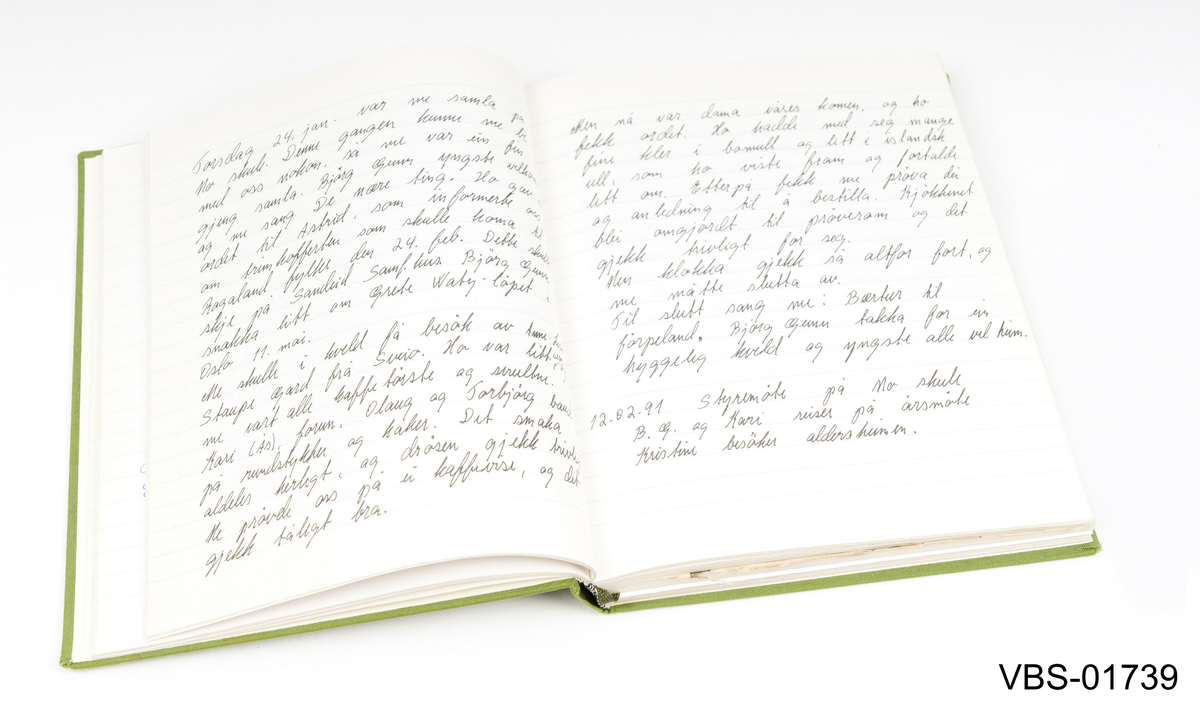 Torsdag 24. jan. var me samla på
No skule. Denne gangen kunne me
med oss nokon, så me var ein fin
gjeng samla. Bjørg Gunn yngste velkom
og me sang De nære ting. Ho gav
ordet til Astrid, som informerte oss
om krimkofferten som skulle koma til
Rogaland fylke den 24. feb. Dette skulle
skje på Sandeid Samf.hus Bjørg Gunn
snakka litt om Grete Waitz-løpet i
Oslo 11. mai.
Me skulle i kveld få besøk av
Staupe Gard fra Sveio. Ho var litt
me vart alle kaffetørste og
Kari (As), forum, Olaug og Torbjørg
på rundstykker og kaker. Det smaka
aldeles herlegt, og drøsen gjekk
Me prøvde oss på ei kaffevise, og det
gjekk tålegt bra.
Men nå var dama våres komen, og ho
fekk ordet. Ho hadde med seg mange
fine kler i bomull og litt i islandsk
ull, som ho viste fram og fortalde
litt om. Etterpå fekk me prøva dei
og anledning til å bestilla. Kjøkkenet
blei omgjordt til prøverom og det
gjekk trivligt for seg.
Men klokka gjekk så altfor fort, og
me måtte slutta av.
Til slutt sang me: Bærtur til
förpeland. Bjørg Gunn takka for ein
hyggelig kveld og yngste alle vel heim.
12.02.91 Styremøte på No skule
B.G. og Kari reiser på årsmøte
Kristine besøker aldersheimen.
VBS-01739